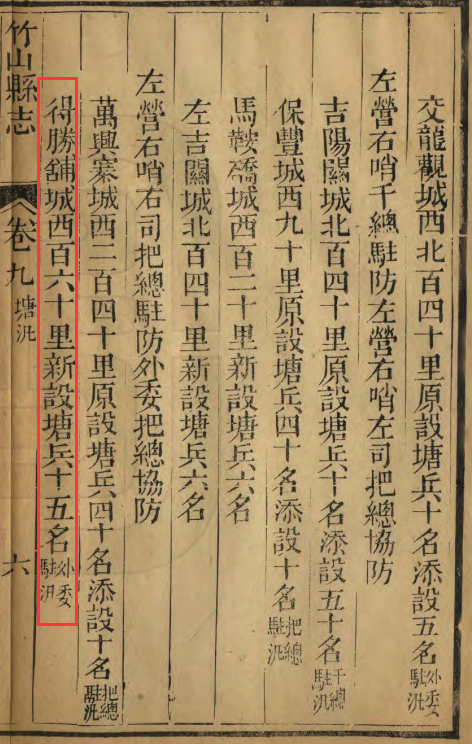 交龍觀城西北百四十里原設塘兵十名添設五名外委駐汛
左營右哨千總駐防左營右哨左司把總協防
吉陽關城北百四十里原設塘兵十名添設五十名千總駐汛
保豐城西九十里原設塘兵四十名添設十名把總駐汛
馬鞍礄城西百二十里新設塘兵六名
左吉關城北百四十里新設塘兵六名
左營右哨右司把總駐防外委把總協防
萬興寨城西二百四十里原設塘兵四十名添設十名把總駐汛
得勝舖城西百六十里新設塘兵十五名外委駐汛
竹山縣志
卷九 塘汛
六